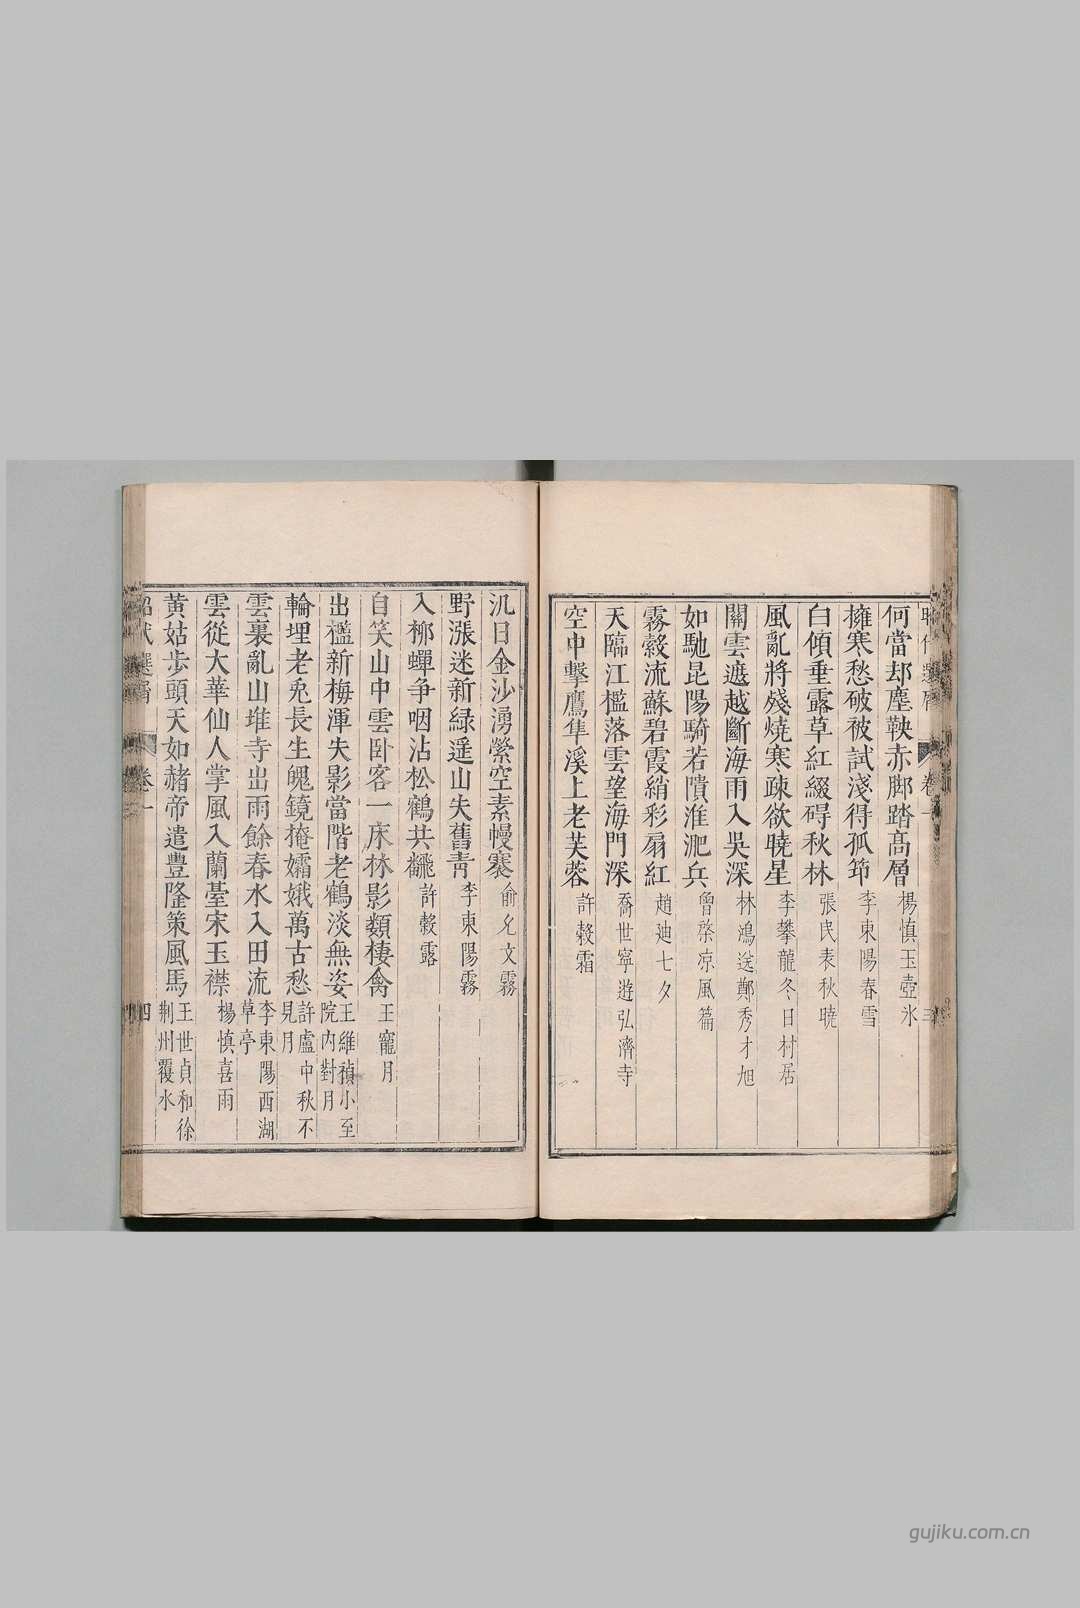 昭代選屑 卷一 三
何當却塵鞅赤脚踏高層 楊慎玉壺氷
擁寒愁破被試淺得孤筇 李東陽春雪
白傾垂露草紅綴碍秋林 張民表秋曉
風亂將殘燒寒疎欲曉星 李攀龍冬日村居
關雲遮越斷海雨入吳深 林鴻送鄭秀才旭
如馳昆陽騎若噴淮淝兵 曾棨凉風篇
霧縠流蘇碧霞綃彩扇紅 趙迪七夕
天臨江檻落雲望海門深 喬世寧遊弘濟寺
空中擊鷹隼溪上老芙蓉 許穀霜
汎日金沙湧縈空素幔褰 俞允文霧
野漲迷新綠遥山失舊青 李東陽霧
入栁蟬争咽沾松鶴共飜 許穀露
自笑山中雲卧客一床林影𩔖棲禽 王寵月
出檻新梅渾失影當階老鶴淡無姿 王維禎小至院内對月
輪埋老兎長生魄鏡掩孀娥萬古愁 許盧中秋不見月
雲裏亂山堆寺出雨餘春水入田流 李東陽西湖草亭
雲從大華仙人掌風入蘭臺宋玉襟 楊慎喜雨
黄姑步頭天如赭帝遣豐隆策風馬 王世貞和徐荆州覆水
昭代選屑 卷一 四
gujiku.com.cn